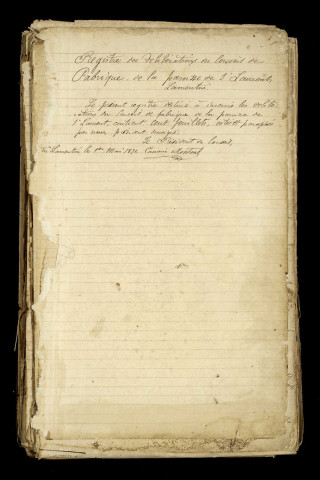 Registre des Délibérations du Conseil de
Fabrique de la paroisse de St Laurent,
Lamentin
Le présent registre destiné à inscrire les délibé-
rations du Conseil de fabrique de la paroisse de
St Laurent, contient cent feuillets, coté et paraphé
par nous président
Le Président du Conseil,
Lamentin le 1er Mai